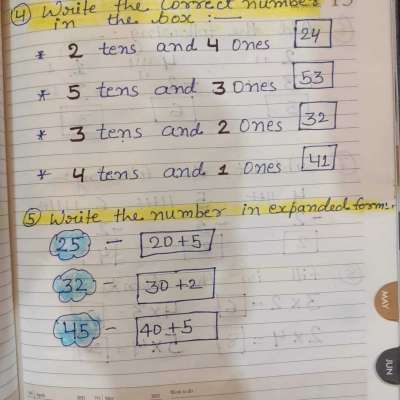 ④ Write the correct number
in the box :—
* 2 tens and 4 Ones 24
* 5 tens and 3 Ones 53
* 3 tens and 2 Ones 32
* 4 tens and 1 Ones 41
⑤ Write the number in expanded form:-
25 — 20+5
32 — 30+2
45 — 40+5
MAY
JUN